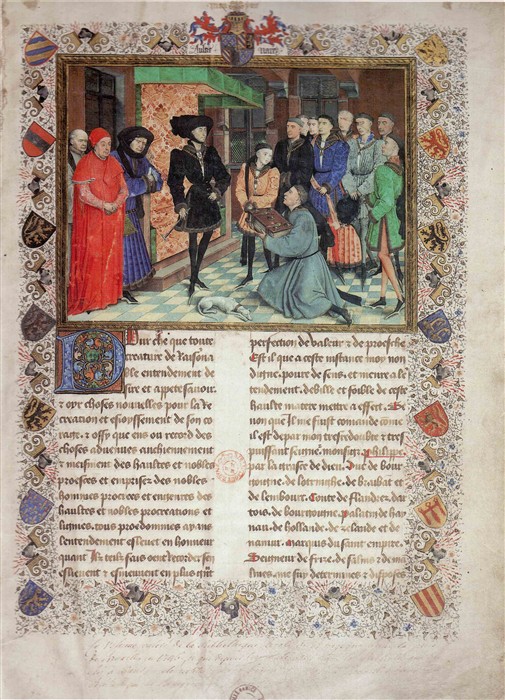 Pour che que toute
creature de Raisona
ble entendement de
sire et appete sauoir.
& oyr choses nouuelles pour la Re
creation et esioissement de son co
rage. & ossy que ens ou record des
choses aduenues anchiennement
& meisment des haultes et nobles
proesses et emprises des nobles
hommes procrees et engenres des
haultes et nobles procreations et
lignies. tous preodommes ayans
lentendement esleuet en honneur
quant Ilz telz fais oent recorder son
esliement & esmeuuent en plus grat
perfection de valeur & de proesche
Est il que a ceste instance moy non
digne. poure de sens. et menre a le
tendement. debille et foible de ceste
haulte matere mettre a effect. Si
non que Il me fuist comande come
il est de par mon tresredoubte & tres
puissant seigneur. monseigneur phelippe
par la grasce de dieu. Duc de bour
gongne. de lotringhe. de brabant
de lembourc. Conte de flandres. dar
tois. de bourgongne. palatin de hay
nau. de hollande. de zelande et de
namur. marquis du saint empire.
Seigneur de frize. de salins & de ma
lines. me suy determines & disposes